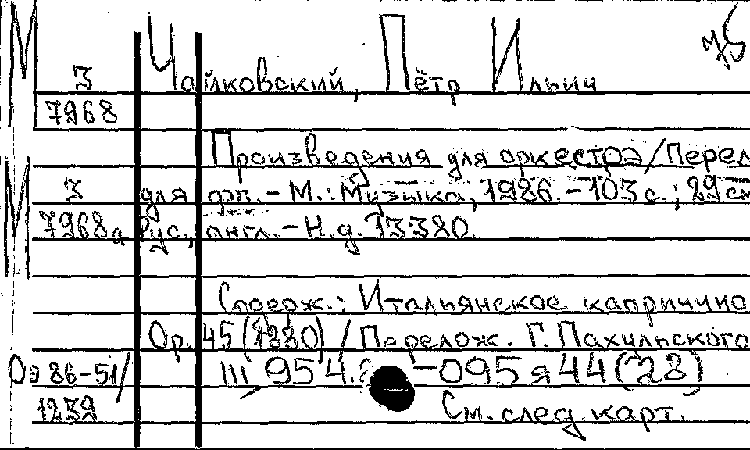 М 75
З Чайковский, Пётр Ильич
7968
Произведения для оркестра/Перел
М З для фп. - М.: Музыка, 1986. - 103 с.; 29 см
7968а Рус., англ. - Н.д. 13380.
Содерж.: Итальянское каприччио
Ор. 45 (1880) / Перелож. Г. Пахульского
Оэ 86-51/ Ш 954. -095 я 44 (28)
1239 См. след. карт.